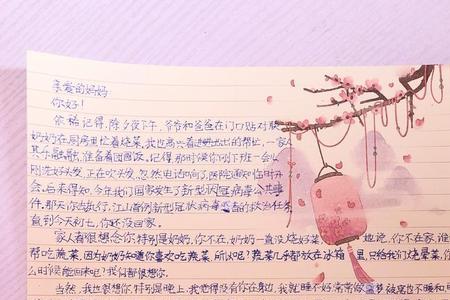 亲爱的妈妈
你好！
依稀记得，除夕夜下午，爷爷和爸爸在门口贴对联
奶奶在厨房里忙着烧菜，我也高兴着进进出出的帮忙，一家人
其乐融融，准备着团圆饭，记得那时候你刚下班一会儿
刚洗好头发，正在吹头发，忽然电话响了医院通知临时开
会，后来得知，今年我们国家发生了新型冠状病毒公共事
件，那天你去执行，江山首例新型冠状病毒患者的救治任务
直到今天初七，你还没回家。
家人都很想念你，特别是奶奶，你不在，奶奶一直没烧好菜，
她说，你不在家，谁
帮吃蔬菜，因为奶奶知道你喜欢吃蔬菜，所以呢？蔬菜几乎都放在冰箱里，只给我们烧荤菜，你
么时候能回来吧？我们都很想你。
当然，我也很想你，特别是晚上，我觉得没有你在身边，我就睡不好，常常做